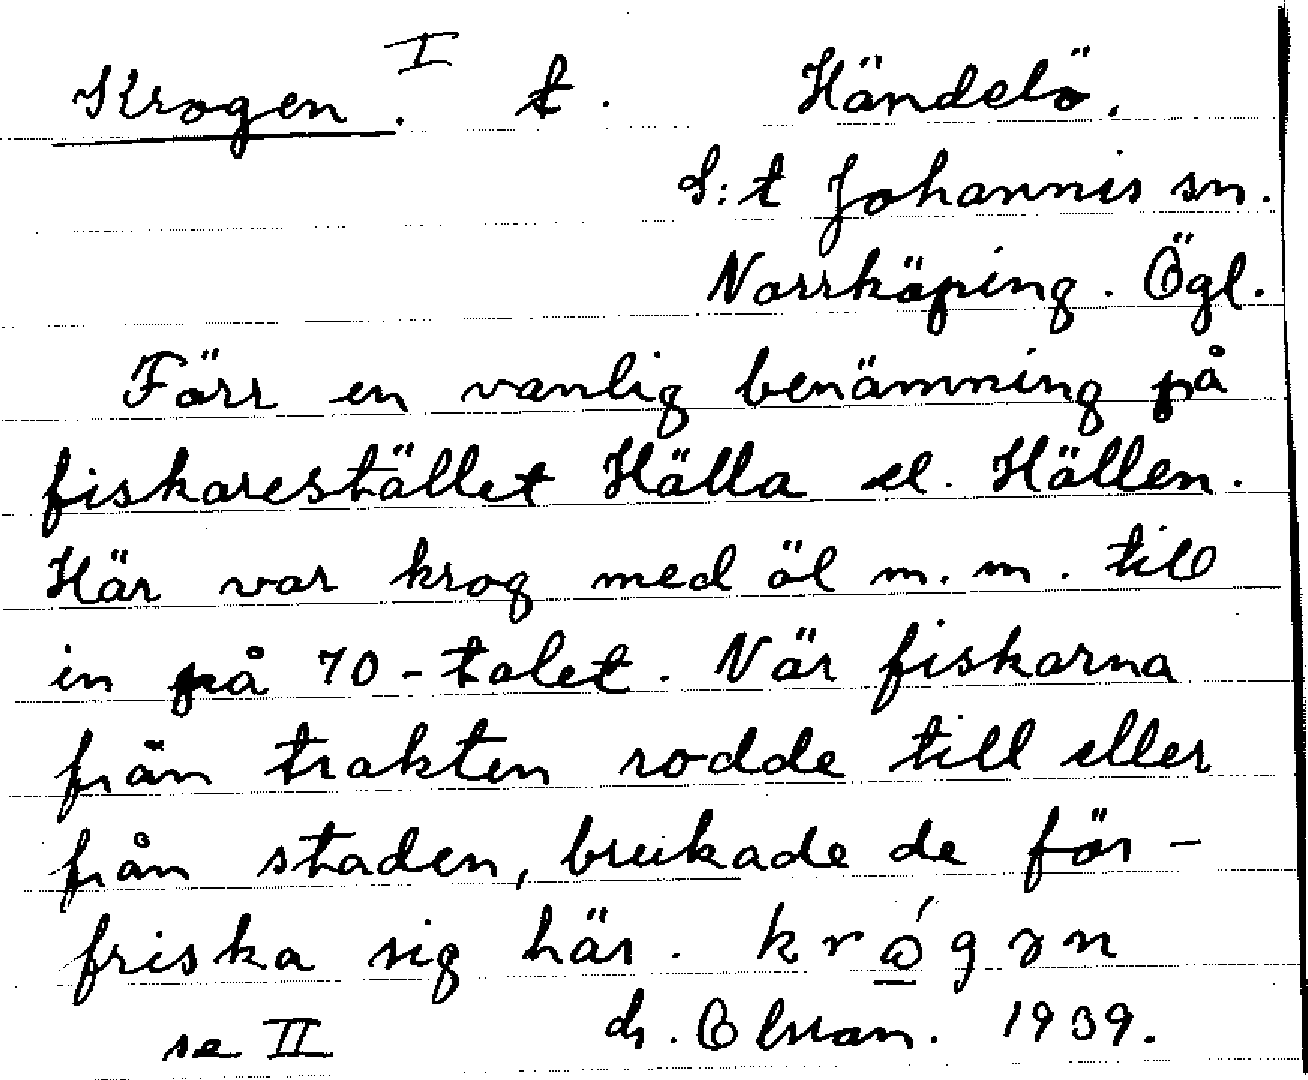 Krogen. I t. Händelö.
S:t Johannis sn.
Norrköping. Ögl.
Förr en vanlig benämning på
fiskarestället Hälla el. Hällen.
Här var krog med öl m.m. till
in på 70-talet. När fiskarna
från trakten rodde till eller
från staden, brukade de för-
friska sig här.
se II Olsson. 1939.